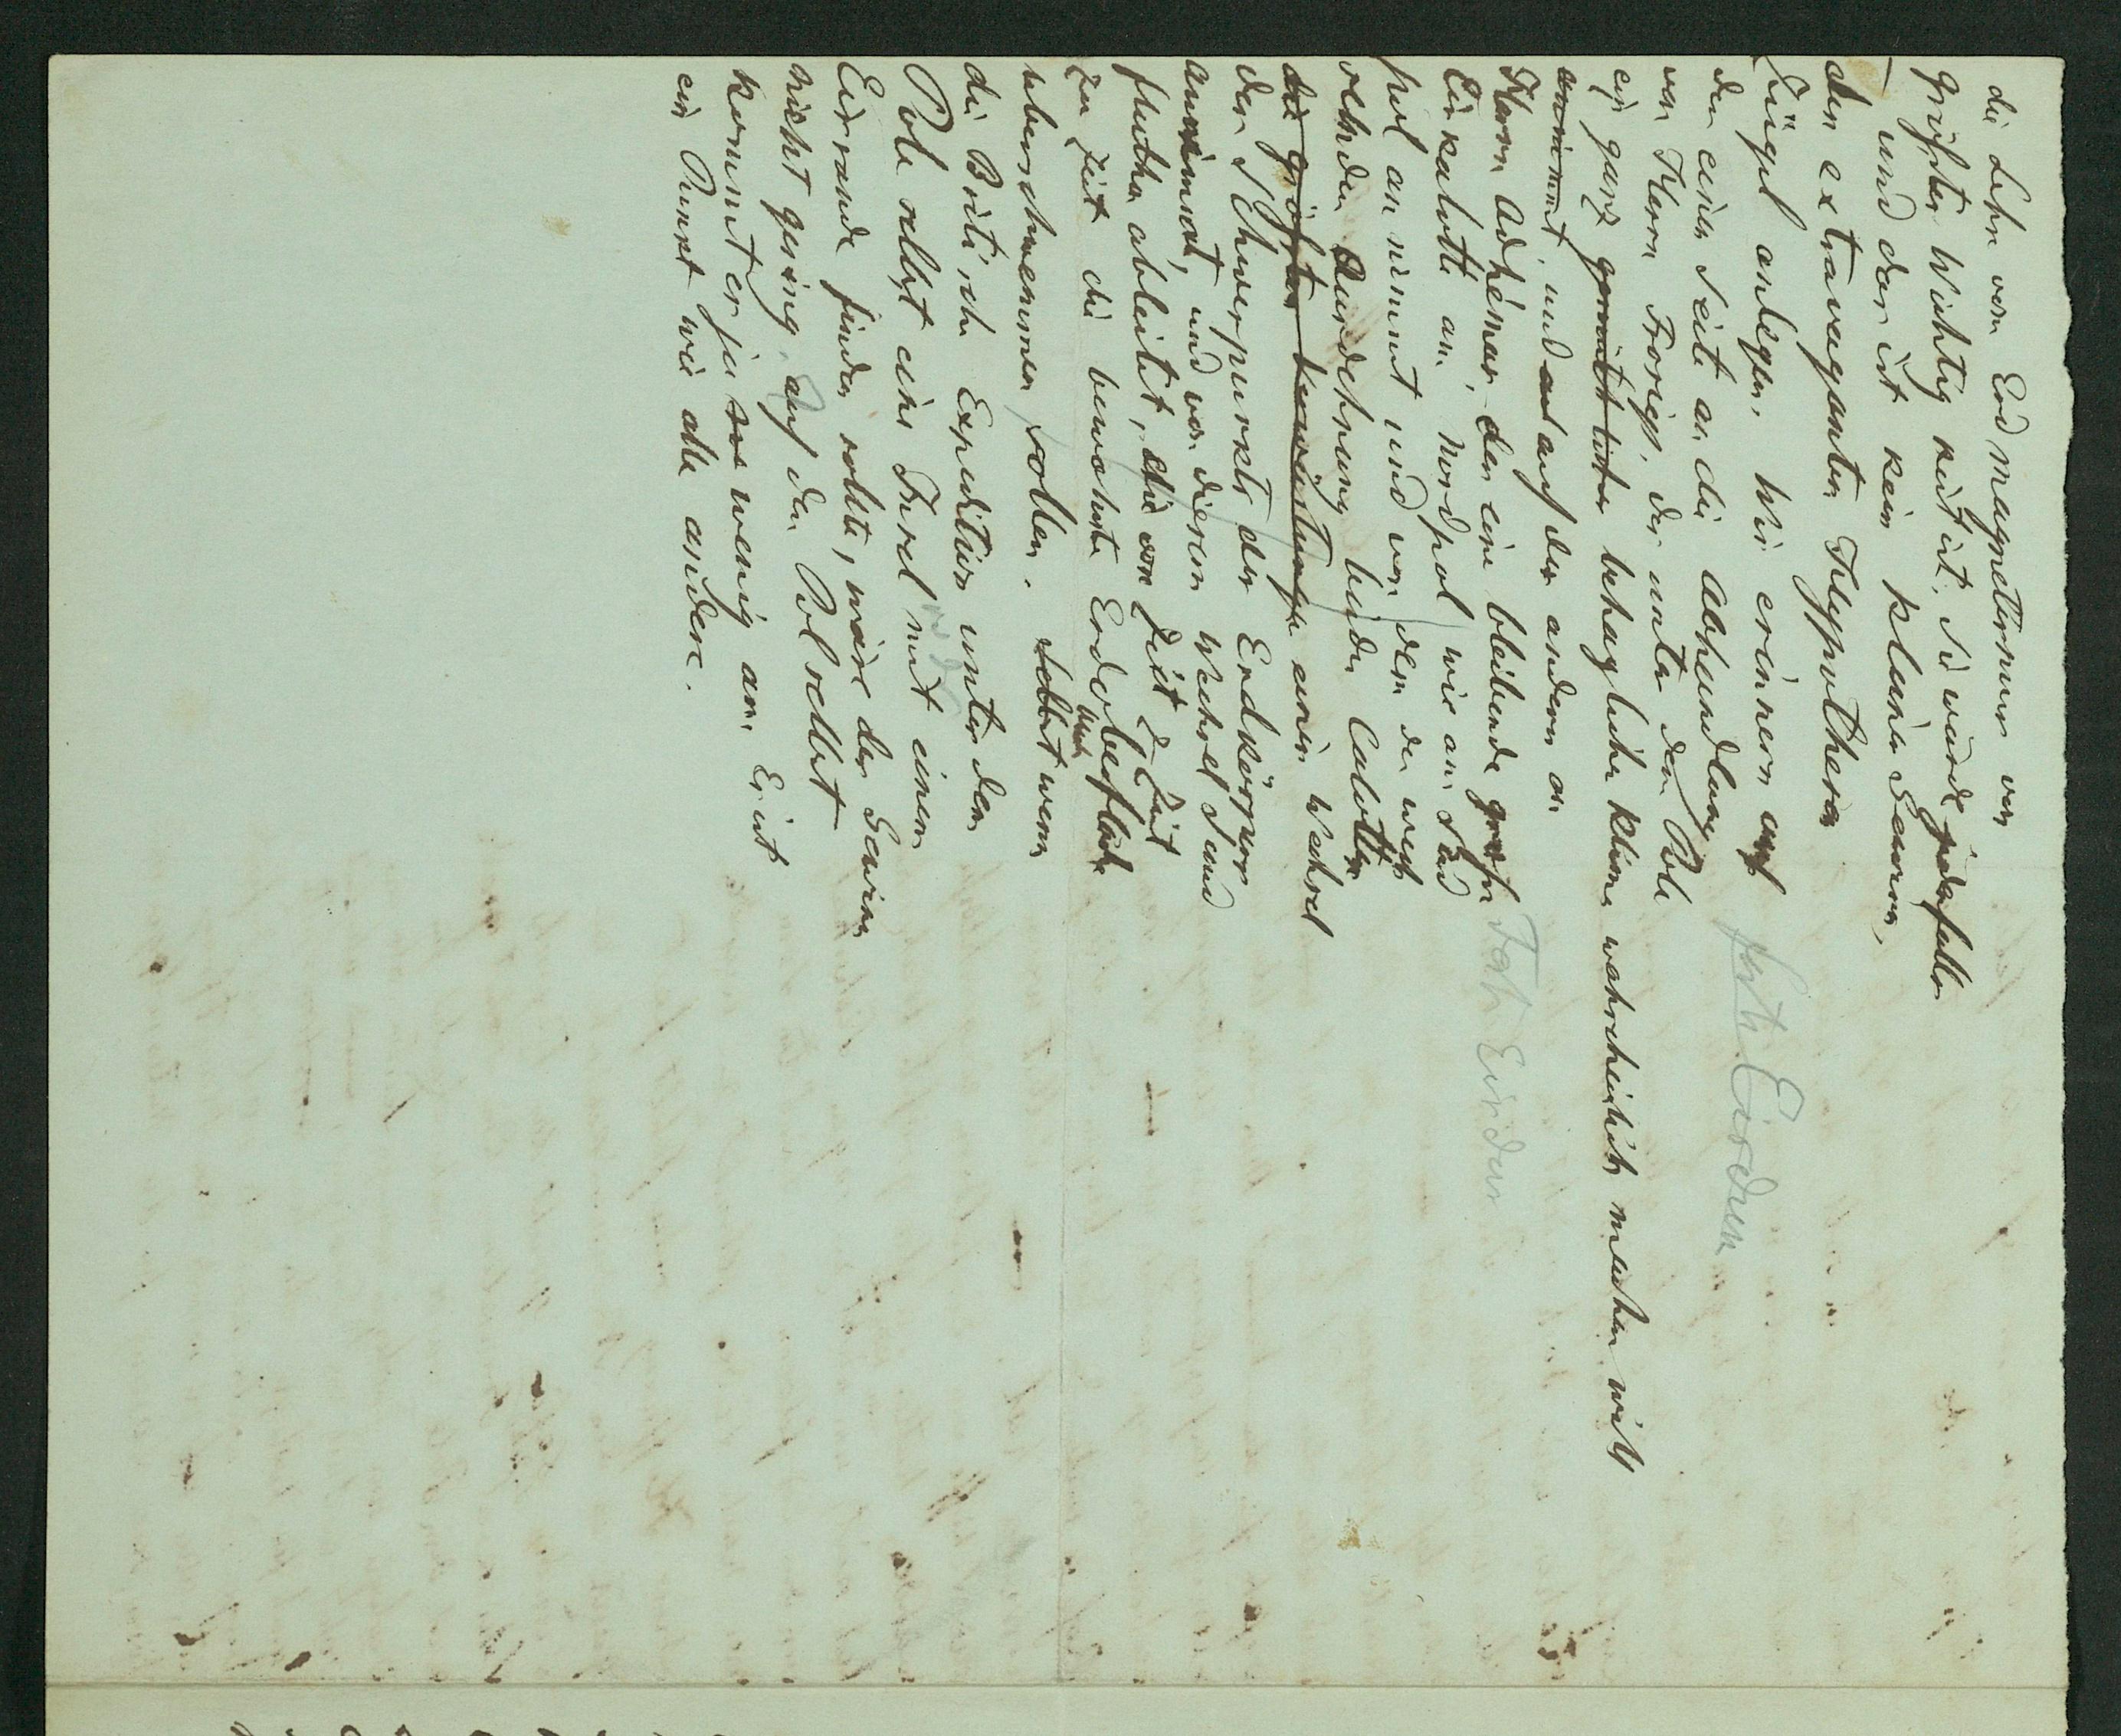 die Lehre vom Erdmagnetismus von
größter Wichtigkeit ist. Sie würde jedenfalls
– und das ist kein kleiner Gewinn,
den extravaganten Hypothesen
Zügel anlegen. Wir erinnern auf
der einen Seite an die Abhandlung
von Herrn Froriep, der unter dem Pole
ein ganz gemüthliches behagliches Klima wahrscheinlich machen will
annimmt, und auf der andern an
Herrn Adhémar, der eine bleibende große
Eiskalotte am Nordpol wie am Süd
pol annimmt und von dem der wech
selnden Ausdehnung beider Calotten
die größten einen Wechsel
des Schwerpunkts des Erdkörpers
annimmt, und von diesem Wechsel Sund
fluthen ableitet, die von Zeit z. Zeit
zu Zeit die bewohnte Erdoberfläche
überschwemmen sollen. Selbst wenn
die Britische Expedition unter dem
Pole selbst eine Insel mit einem
Eisrande finden sollte, wäre der Gewinn
nicht gering. Auf den Pol selbst
kommt er ja so wenig an. Er ist
ein Punkt wie alle andere.